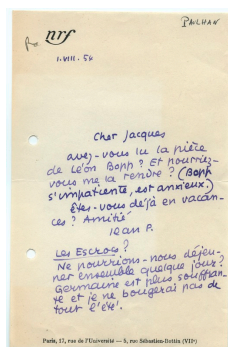 nrf
PAULHAN
1.VIII.54
Cher Jacques
avez-vous lu la pièce
de Léon Bopp ? Et pourriez-
vous me la rendre ? (Bopp
s'impatiente, est anxieux.)
Êtes-vous déjà en vacan-
ces ? Amitié
Jean P.
Les Escrocs ?
Ne pourrions-nous déjeu-
ner ensemble quelque jour ?
Germaine est plus souffran-
te et je ne bougerai pas de
tout l'été.
Paris, 17, rue de l'Université — 5, rue Sébastien-Bottin (VIIe)